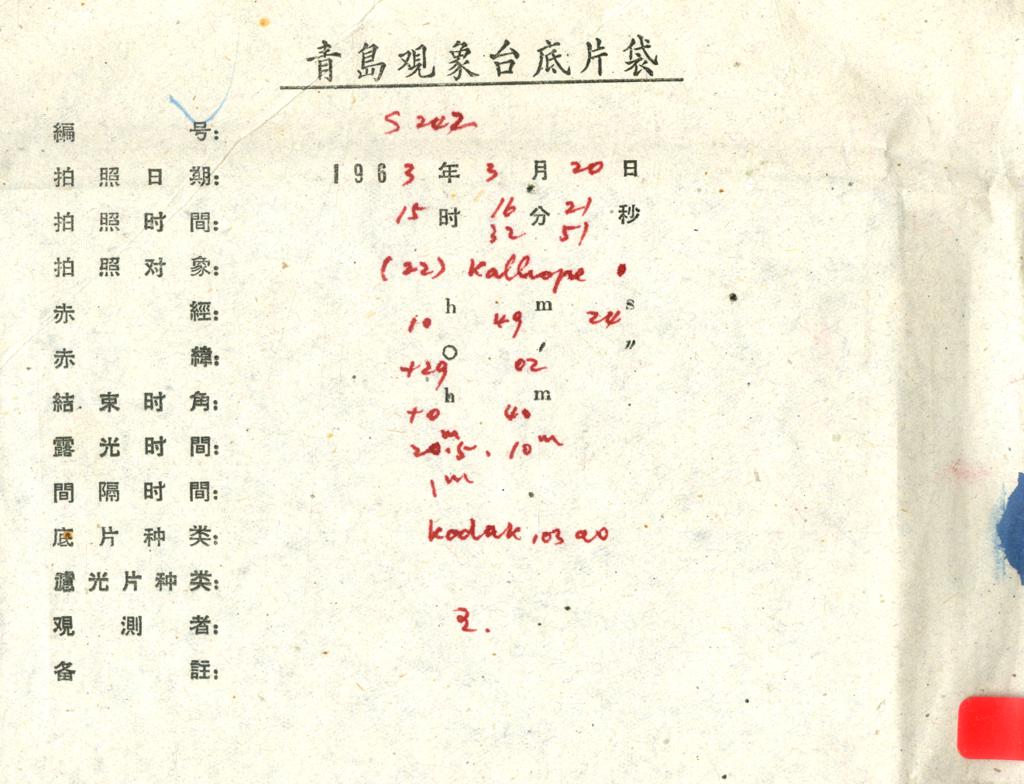 青島观象台底片袋
編号: S 242
拍照日期: 1963年3月20日
拍照时間: 15时16分21秒
32 51
拍照对象: (22) Kalliope
赤經: 10h 49m 24s
赤緯: +29° 02′ ″
結束时角: +0h 40m
露光时間: 20m.5. 10m
間隔时間: 1m
底片种类: Kodak 103 a0
濾光片种类:
观測者:
备註: